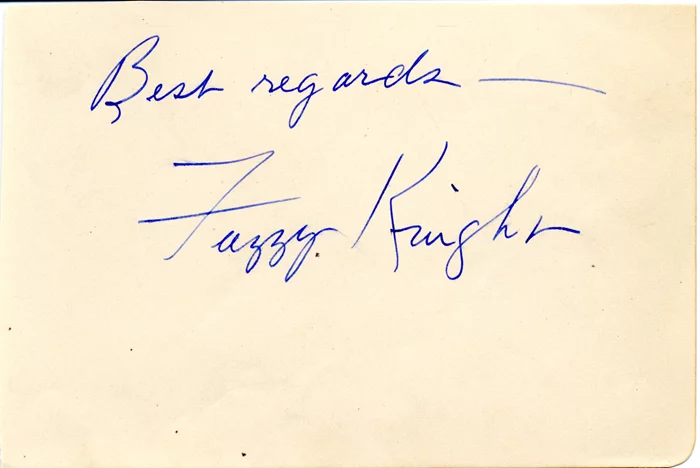 Best regards —
Fuzzy Knight